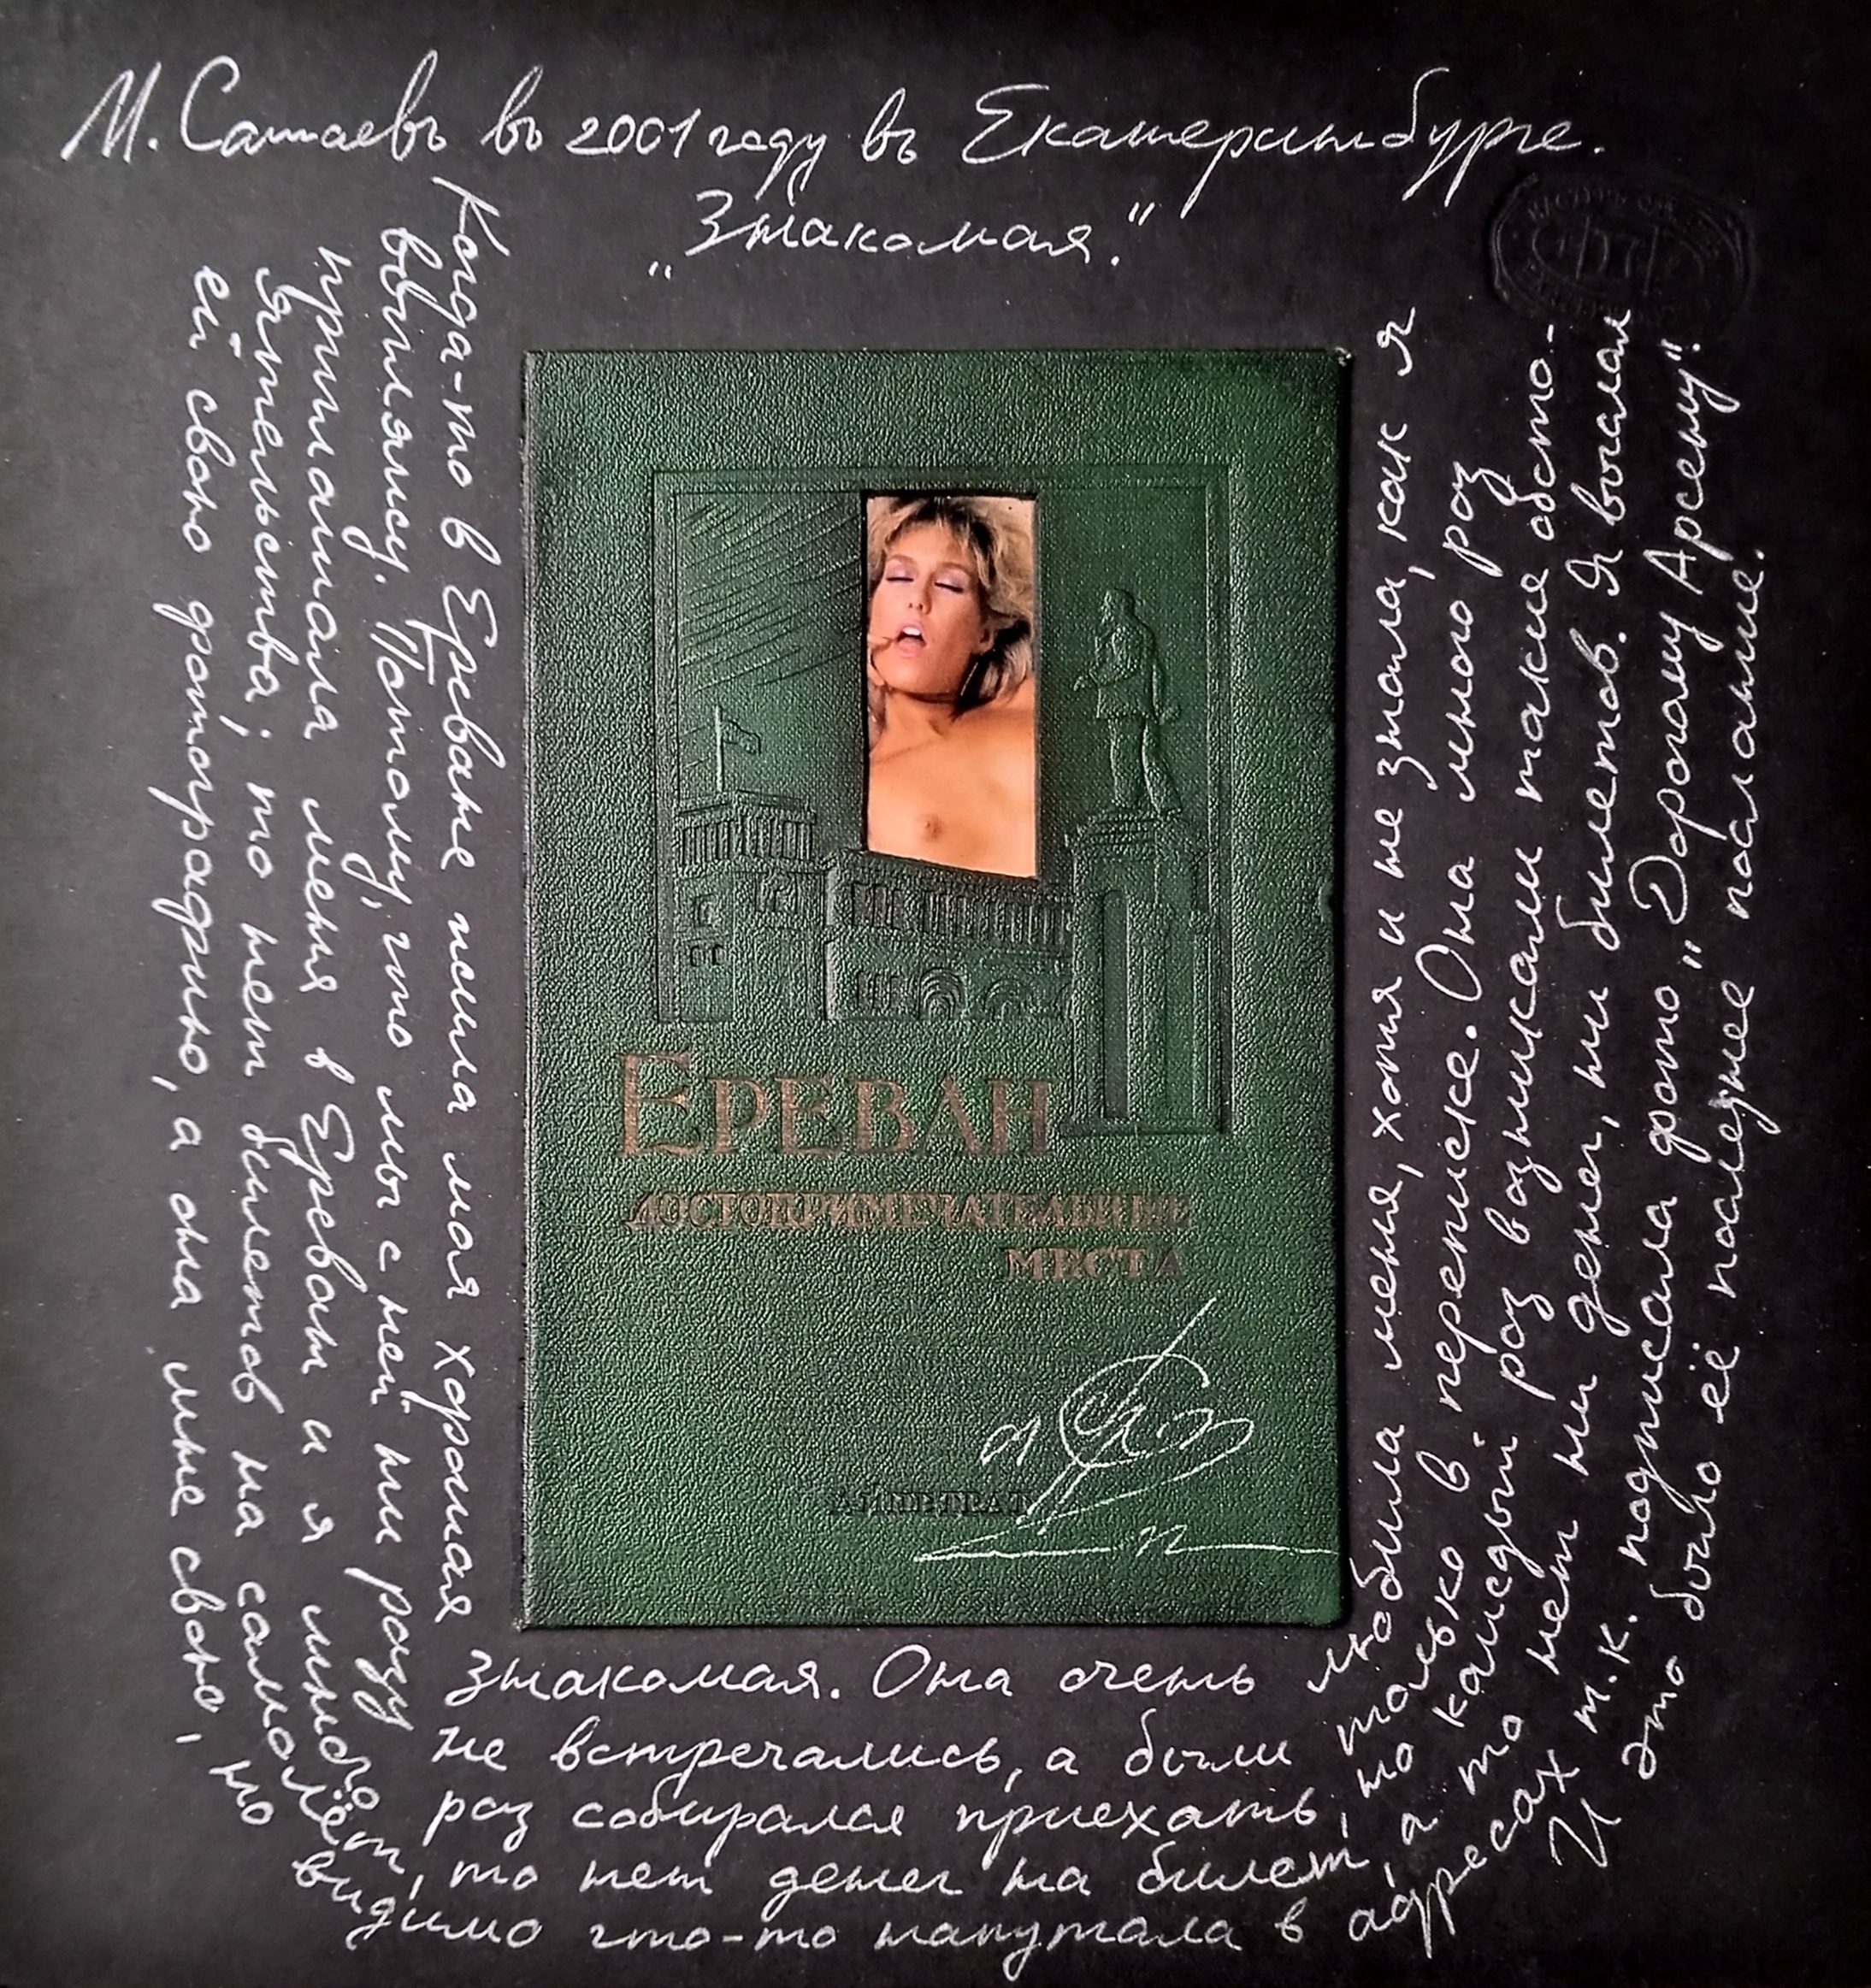 М. Сатаевъ въ 2001 году въ Екатеринбурге.
„Знакомая."
Когда-то в Ереване жила моя хорошая знакомая. Она очень любила меня, хотя и не знала, как я
выгляжу. Потому, что мы с ней ни разу не встречались, а были только в переписке. Она много раз
приглашала меня в Ереван и я много раз собирался приехать, но каждый раз возникали такие обсто-
ятельства; то нет билетов на самолёт, то нет денег на билет, а то нет ни денег, ни билетов. Я выслал
ей свою фотографию, а она мне свою, но видимо что-то напутала в адресах т.к. подписала фото „Дорогому Арсену".
И это было её последнее послание.
ЕРЕВАН
ДОСТОПРИМЕЧАТЕЛЬНЫЕ
МЕСТА
АЙПЕТРАТ